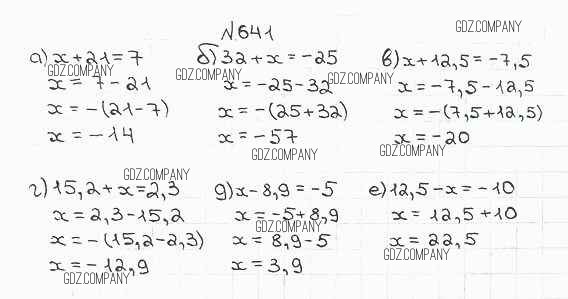 №641
GDZ.COMPANY
а) x + 21 = 7
GDZ.COMPANY
x = 7 - 21
x = -(21-7)
x = -14
б) 32 + x = -25
GDZ.COMPANY
x = -25 - 32
x = -(25+32)
x = -57
GDZ.COMPANY
в) x + 12,5 = -7,5
GDZ.COMPANY
x = -7,5 - 12,5
x = -(7,5+12,5)
x = -20
GDZ.COMPANY
GDZ.COMPANY
г) 15,2 + x = 2,3
x = 2,3 - 15,2
x = -(15,2-2,3)
x = -12,9
GDZ.COMPANY
д) x - 8,9 = -5
x = -5 + 8,9
GDZ.COMPANY
x = 8,9 - 5
x = 3,9
е) 12,5 - x = -10
x = 12,5 + 10
x = 22,5
GDZ.COMPANY